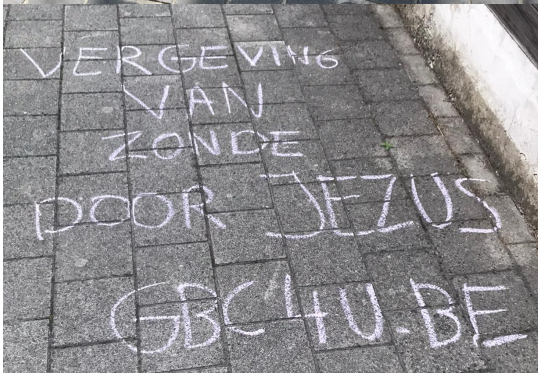 VERGEVING
VAN
ZONDE
DOOR JEZUS
GBC4U.BE